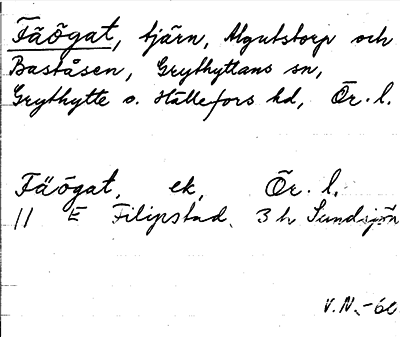 Fäögat, tjärn, Älgutstorp och
Baståsen, Grythyttans sn,
Grythytte o. Hällefors hd, Ör. l.
Fäögat, ek, Ör. l.
11 E Filipstad, 3 h Sundsjön
V.N. -60